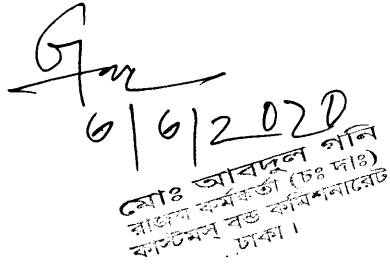 6/6/2020
মোঃ আবদুল গনি
রাজস্ব কর্মকর্তা (চঃ দাঃ)
কাস্টমস্ বন্ড কমিশনারেট
ঢাকা।